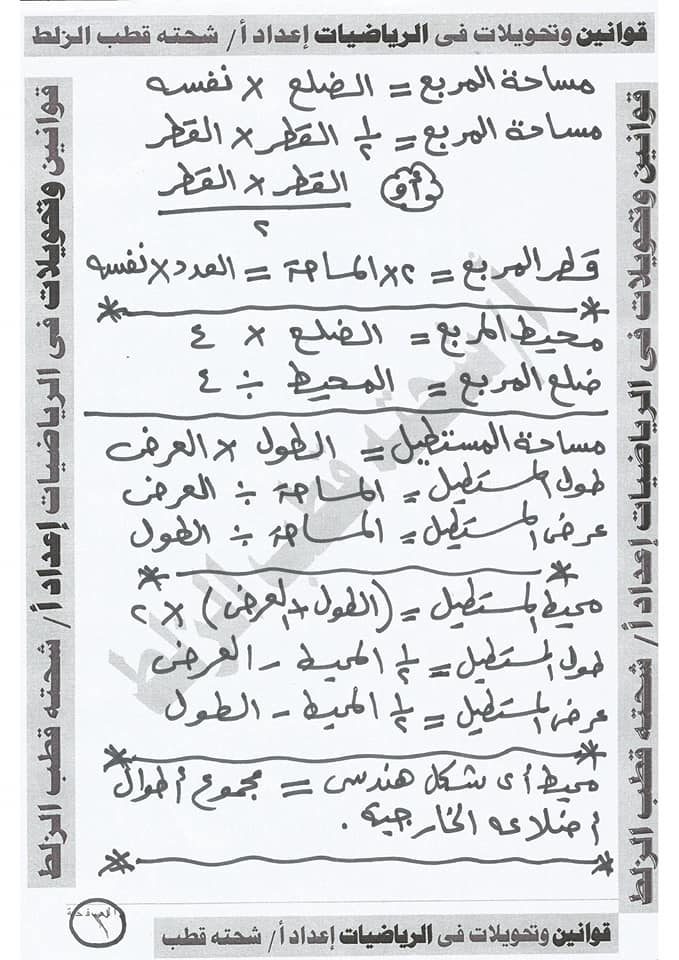 قوانين وتحويلات فى الرياضيات إعداد أ/ شحته قطب الزلط
قوانين وتحويلات فى الرياضيات إعداد أ/ شحته قطب الزلط
قوانين وتحويلات فى الرياضيات إعداد أ/ شحته قطب الزلط
مساحة المربع = الضلع × نفسه
مساحة المربع = ١/٢ القطر × القطر
أو القطر × القطر
٢
قطر المربع = ٢ × المساحة = العدد × نفسه
محيط المربع = الضلع × ٤
ضلع المربع = المحيط ÷ ٤
مساحة المستطيل = الطول × العرض
طول المستطيل = المساحة ÷ العرض
عرض المستطيل = المساحة ÷ الطول
محيط المستطيل = (الطول + العرض) × ٢
طول المستطيل = ١/٢ المحيط - العرض
عرض المستطيل = ١/٢ المحيط - الطول
محيط أى شكل هندسى = مجموع أطوال
أضلاعه الخارجية .
أ/ شحته قطب الزلط
الصفحة
قوانين وتحويلات فى الرياضيات إعداد أ/ شحته قطب